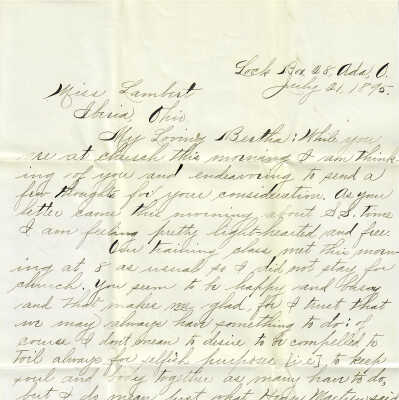 Lock Box 28, Ada, O.
July 21, 1895.
Miss Lambert
Iberia, Ohio
My Loving Bertha: While you
are at church this morning I am think-
ing of you and endeavoring to send a
few thoughts for your consideration. As your
letter came this morning about S.S. time
I am feeling pretty light-hearted and free.
Our training class met this morn-
ing at 8 as usual so I did not stay for
church. You seem to be happy and busy
and that makes me glad, for I trust that
we may always have something to do: of
course I don't mean to desire to be compelled to
toil always for selfish purposes [i.e.] to keep
soul and body together as many have to do,
but I do mean just what said